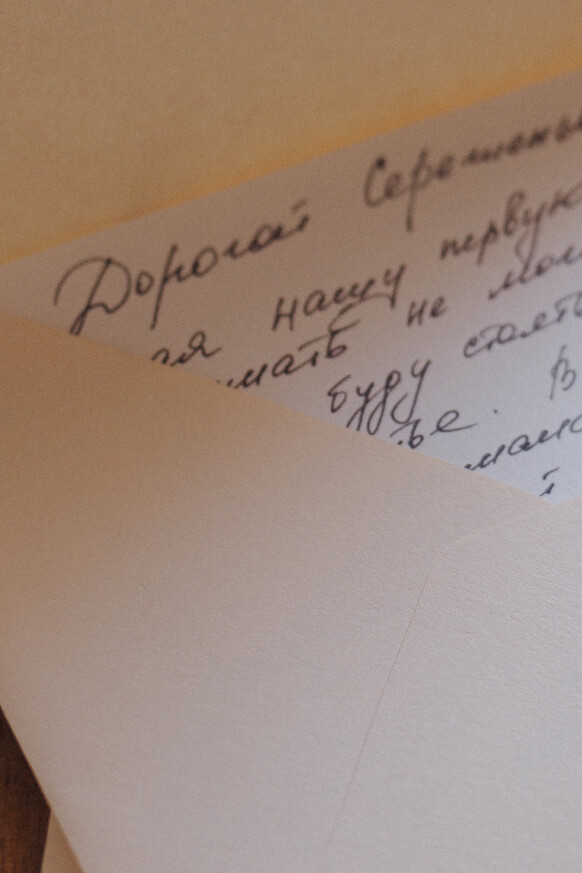 Дорогой Сереженьк
ая нашу первую
имать не мог
буду стоять
ье. В
мама
й